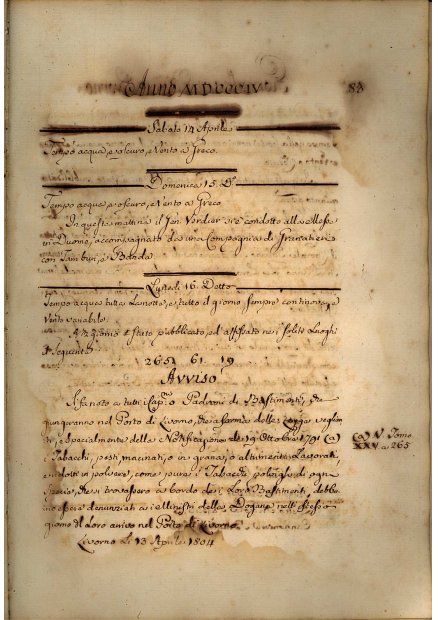 Anno MDCCCIV
83
Sabato 14 Aprile
Tempo acqua, e oscuro, e Vento a Greco.
Domenica 15. Do
Tempo acqua, e oscuro, e Vento a Greco
In questa mattina il Gen. Verdier si è condotto alla Messa
in Duomo, accompagnato da una Compagnia di Granatieri
con Tamburi, e Banda
Lunedi 16. Detto
Tempo acqua tutta la notte, e tutto il giorno sempre continova, e
Vento variabile.
A dì giorno è stato pubblicato, ed affissato nei soliti Luoghi
il Seguente
265 61 19
Avviso
Si fa noto a tutti i Cap.i o Padroni di Bastimenti, che
giungeranno nel Porto di Livorno, che a forma delle Leggi veglian
ti, e specialmente della Notificazione de 19 Ottobre 1791 (a)
i Tabacchi, pesti, macinati, o in grana, o altrimenti Lavorati,
ridotti in polvere, come pure i Tabacchi in foglie di ogni
specie, che si trovassero a bordo dei Loro Bastimenti, debba
no essere denunziati ai Ministri della Dogana nell'istesso
giorno del Loro arrivo nel Porto di Livorno
Livorno Li 13 Aprile 1804
(a) V. Tomo
XXV. a 265